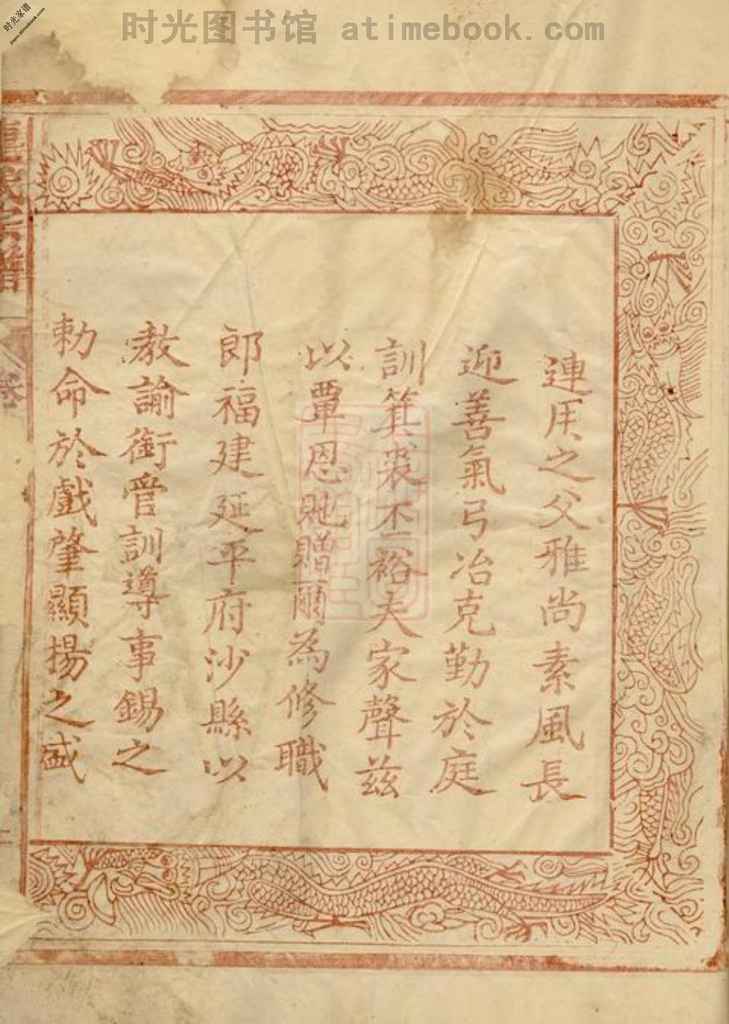 时光图书馆 atimebook.com
时光家谱
連用之父雅尚素風長
迎善氣弓冶克勤於庭
訓箕裘丕裕夫家聲茲
以覃恩貤贈爾為修職
郎福建延平府沙縣以
教諭銜管訓導事錫之
勅命於戲肇顯揚之盛
氏宗譜
卷